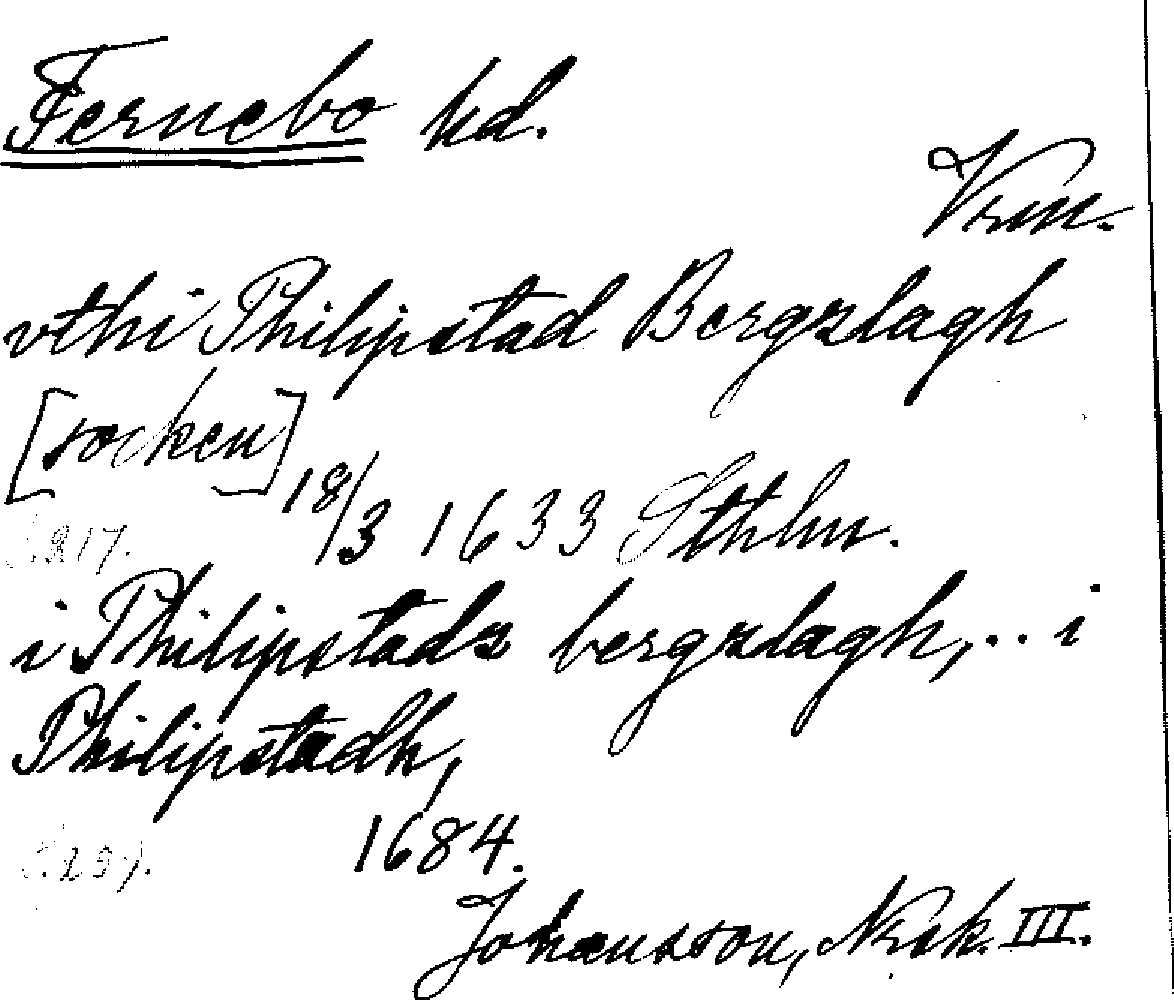 Fernebo hd.
Vrm.
vthi Philipstad Bergzlagh
[socken]
18/3 1633 Sthlm.
S. 217.
i Philipstadz bergzlagh, .. i
Philipstadh,
1684.
Johansson, Norsk. III.